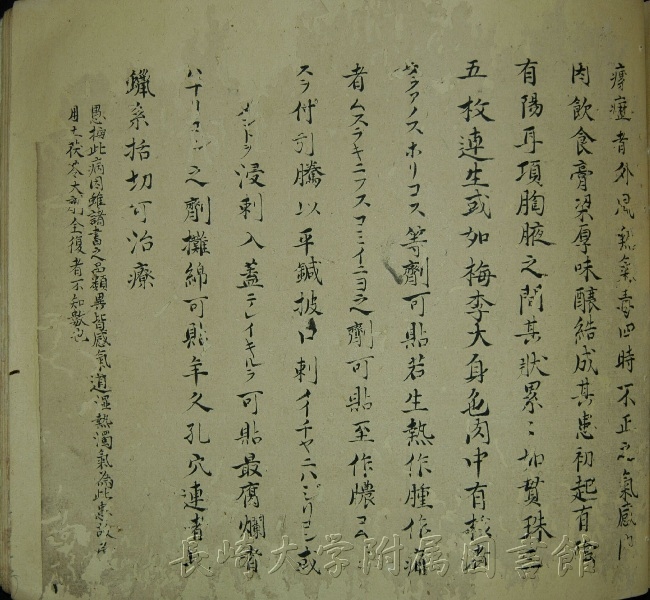 瘡瘻者外風熱氣毒四時不正之氣感內
肉飲食膏粱厚味釀結成其患初起有陰
有陽耳項胸腋之間其狀累〻如貫珠三
五枚連生或如梅李大身色肉中有核者
ホリコス等劑可貼若生熱作腫作痛
者ムスラキニフスコミイニヨ之劑可貼至作膿コム
スラ付引騰以平鍼披口刺イイチヤニハシリコン或
メントラ浸刺入蓋テレイキルラ可貼最腐爛者
ハナリコン之劑攤綿可貼年久孔穴連者
蠟糸括切可治療
愚按此病因雖諸書之品類異皆感氣濕熱濁氣為此患
用土茯苓大劑全復者不知數也
長崎大学附属図書館